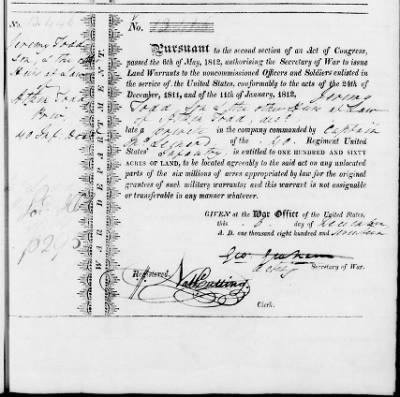 No.
Jeremy Todd
Son
heir at Law
Todd
40
WAR DEPARTMENT.
No.
Pursuant to the second section of an Act of Congress,
passed the 6th of May, 1812, authorising the Secretary of War to issue
Land Warrants to the noncommissioned Officers and Soldiers enlisted in
the service of the United States, conformably to the acts of the 24th of
December, 1811, and of the 11th of January, 1812. Jeremy
Todd, Son & the other heirs at Law
of Todd, decd
late a private in the company commanded by Captain
of the 40 Regiment United
States' Infantry is entitled to ONE HUNDRED AND SIXTY
ACRES OF LAND, to be located agreeably to the said act on any unlocated
parts of the six millions of acres appropriated by law for the original
grantees of such military warrants; and this warrant is not assignable
or transferable in any manner whatever.
GIVEN at the War Office of the United States,
this day of
A. D. one thousand eight hundred and
Geo. Graham
Secretary of War.
Registered
Nath Cutting
Clerk.